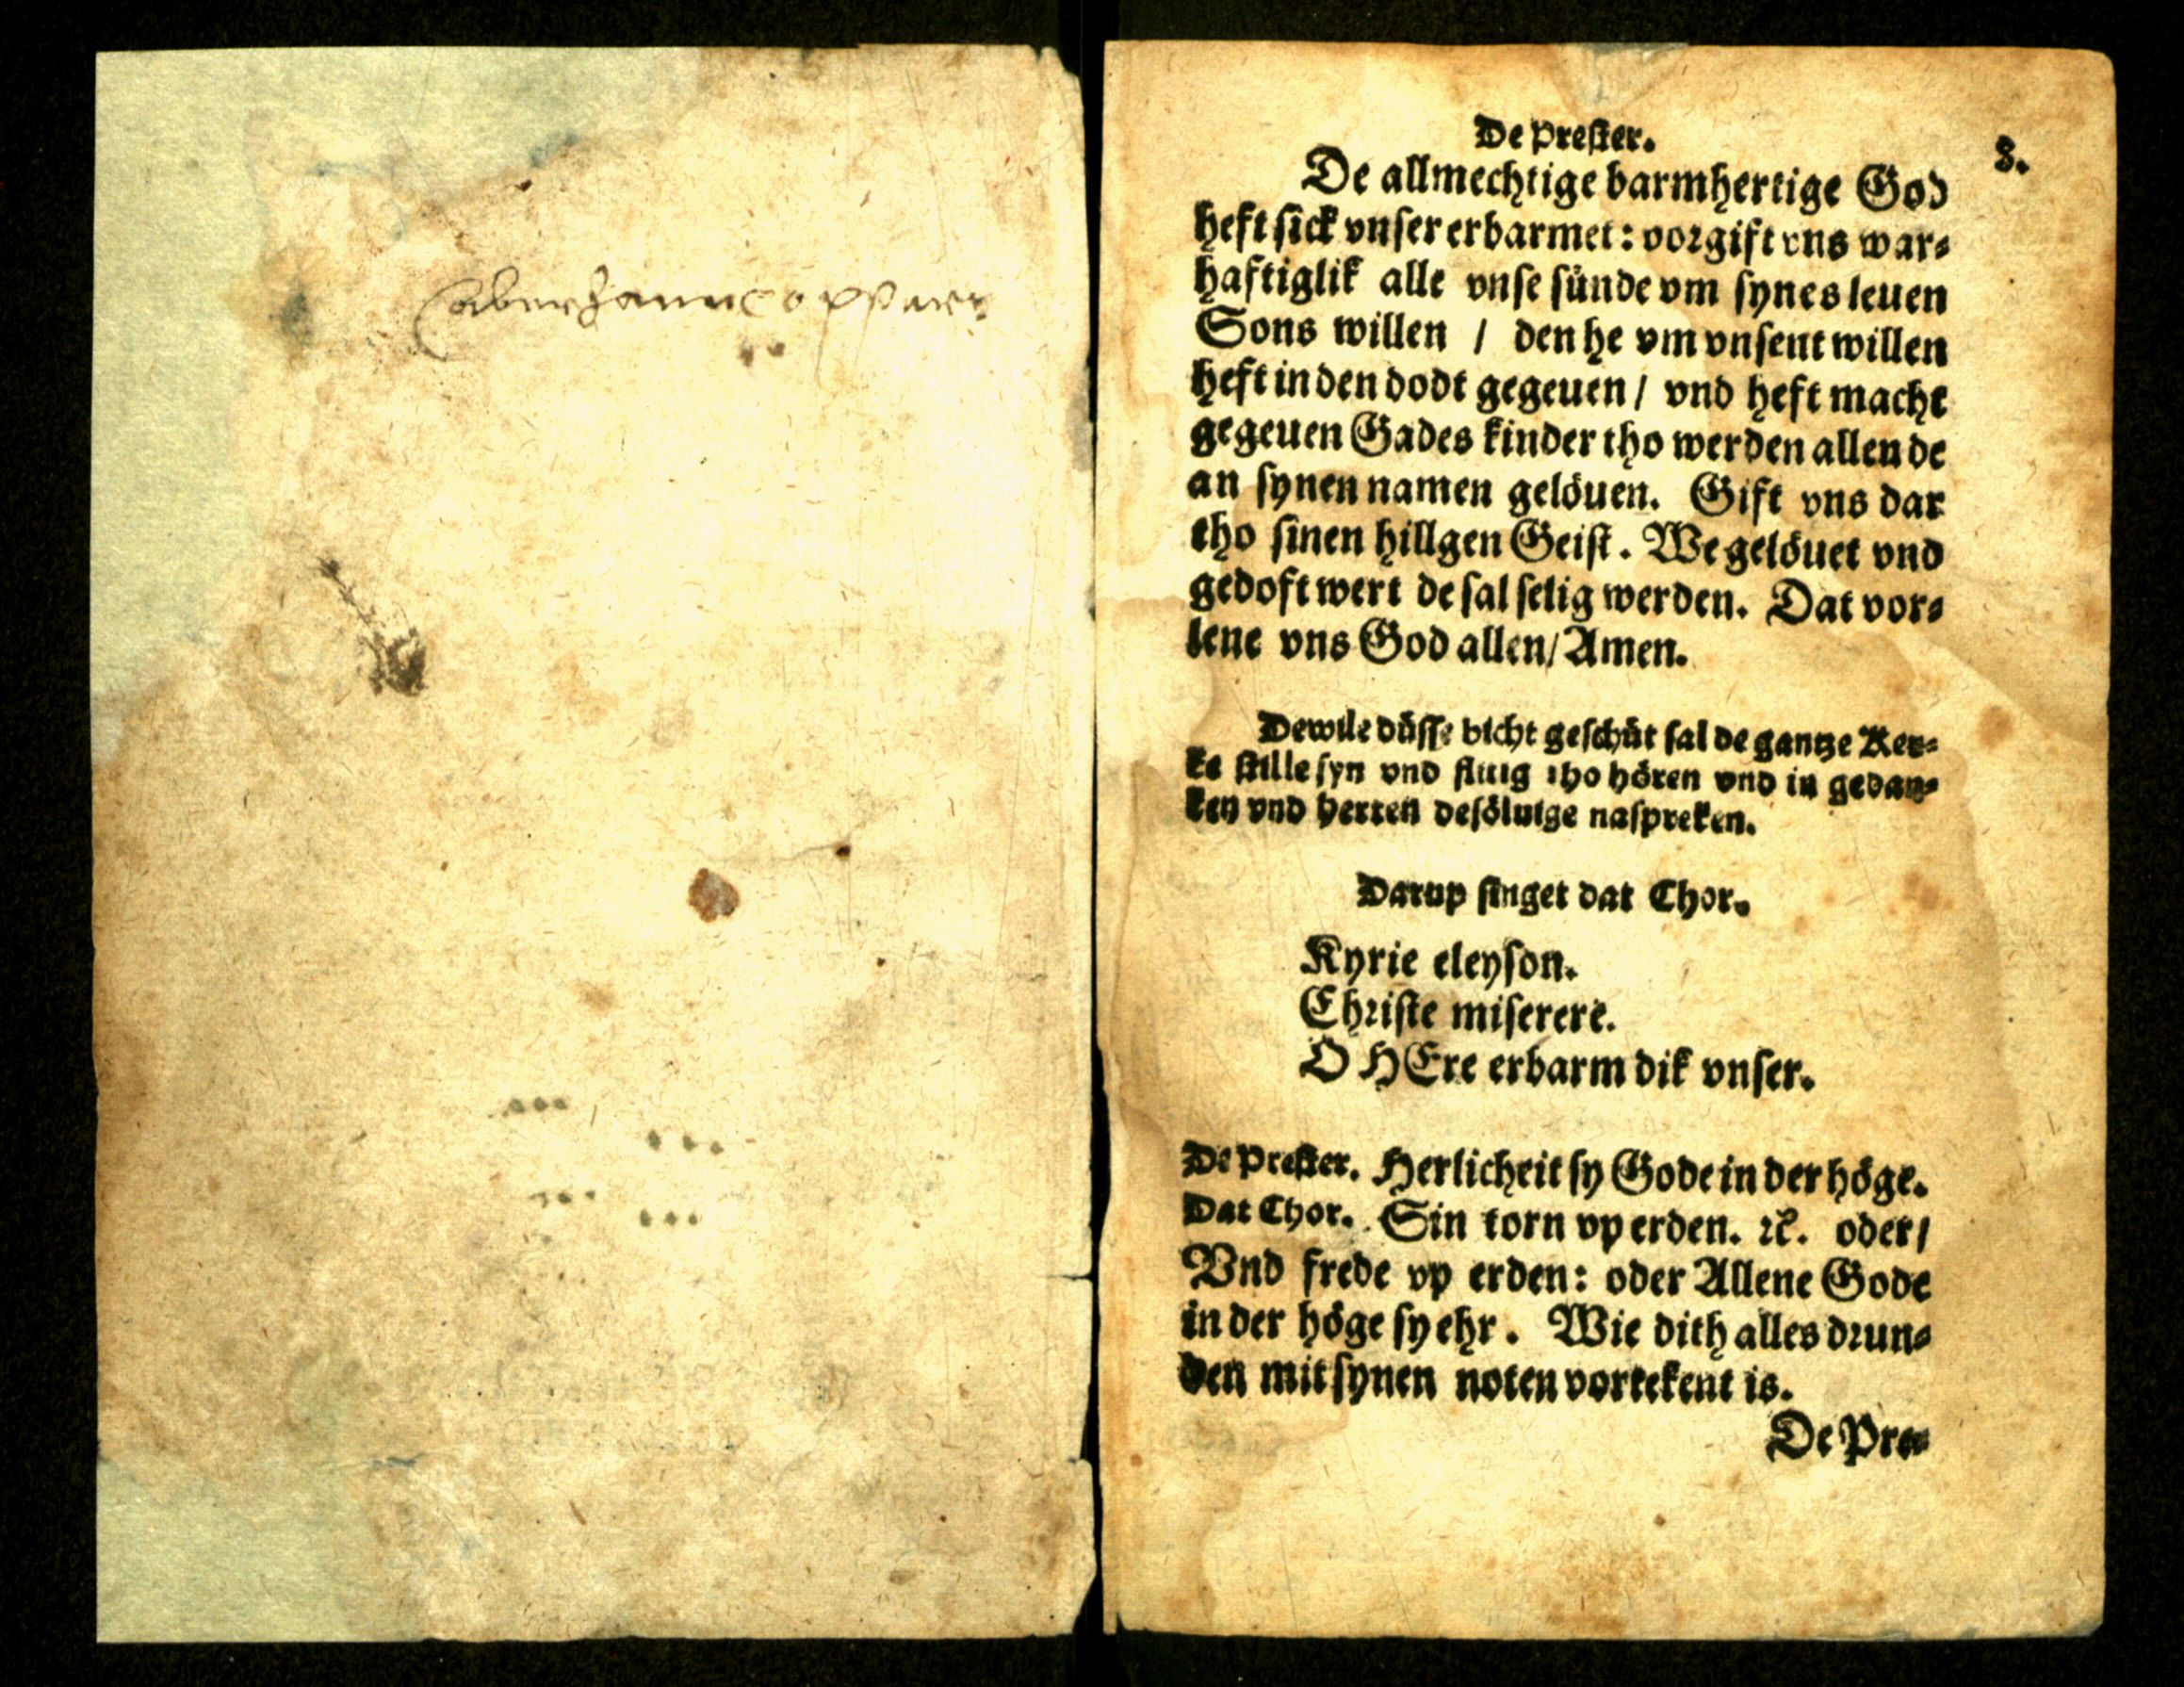 De Prester.
8.
De allmechtige barmhertige God
heft sick vnser erbarmet: vorgift vns war⸗
haftiglik alle vnse sünde vm synes leuen
Sons willen / den he vm vnsent willen
heft in den dodt gegeuen / vnd heft macht
gegeuen Gades kinder tho werden allen de
an synen namen gelöuen. Gift vns dar
tho sinen hillgen Geist. We gelöuet vnd
gedoft wert de sal selig werden. Dat vor⸗
lene vns God allen/ Amen.
Dewile düsse bicht geschüt sal de gantze Ker⸗
ke stille syn vnd flitig tho hören vnd in gedan⸗
ken vnd herten desöluige naspreken.
Darup singet dat Chor.
Kyrie eleyson.
Christe miserere.
O HEre erbarm dik vnser.
De Prester. Herlicheit sy Gode in der höge.
Dat Chor. Sin torn vp erden. ꝛc. oder/
Vnd frede vp erden: oder Allene Gode
in der höge sy ehr. Wie dith alles drun⸗
den mit synen noten vortekent is.
De Pre⸗